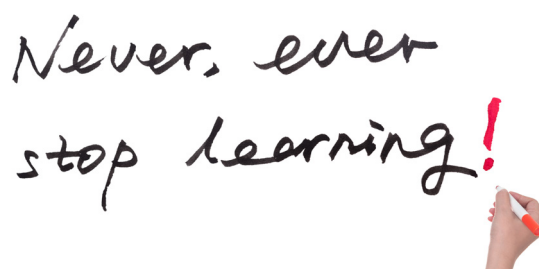 Never, ever
stop learning!